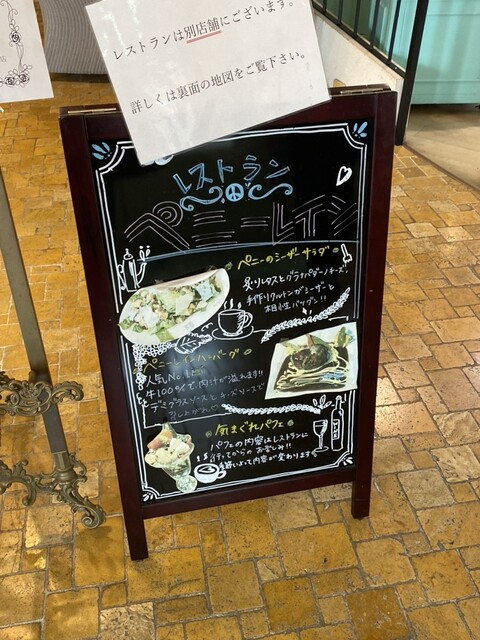 レストランは別店舗にございます。
詳しくは裏面の地図をご覧下さい。
店
レストラン
ペニーレイン
ペニーのシーザーサラダ
炙りレタスとグラナパダーノチーズ!
手作りクルトンがシーザーと
相性バツグン!!
ペニーハンバーグ
人気No.1
牛100%で肉汁が溢れます!!
デミグラスソースとチーズソースで
召し上がれ
気まぐれパフェ
パフェの内容はレストランに
行ってからのお楽しみ!!
季節によって内容が変わります